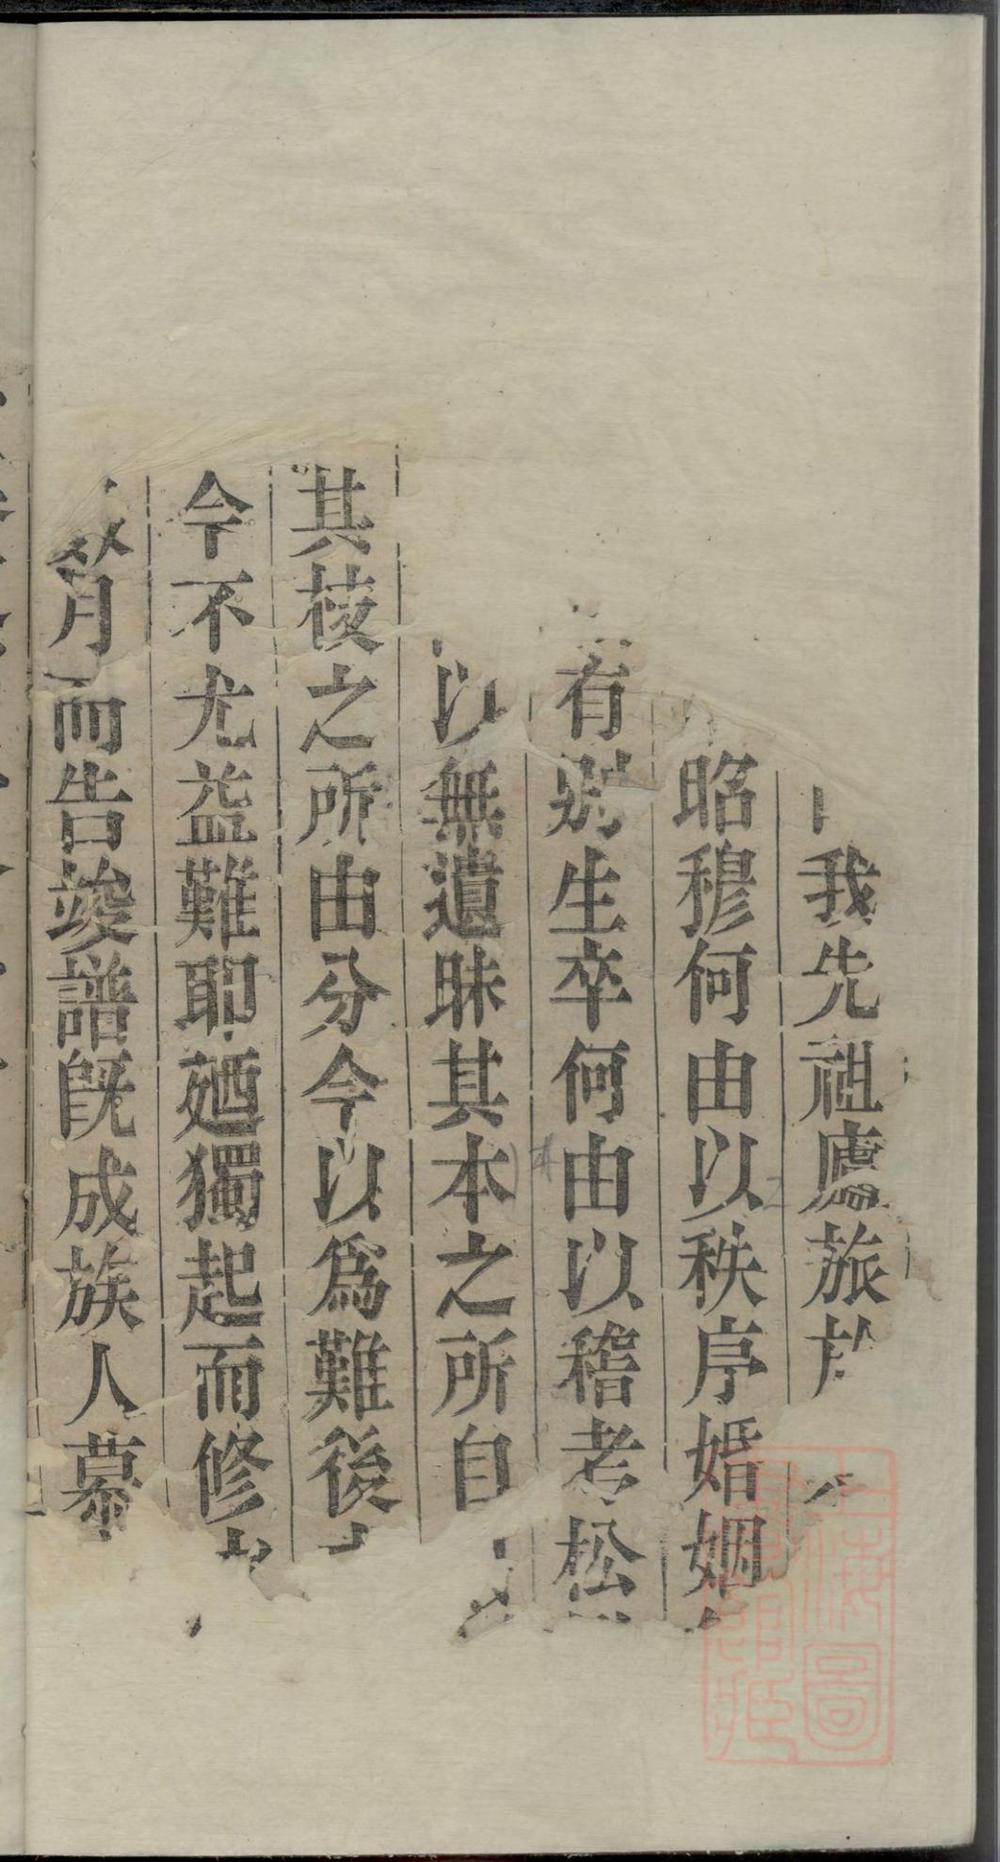 我先祖處旅於
昭穆何由以秩序婚姻
有別生卒何由以稽考松
以無遺昧其本之所自
其荄之所由分今以為難後
今不尤益難耶廼獨起而修
月而告竣譜旣成族人慕